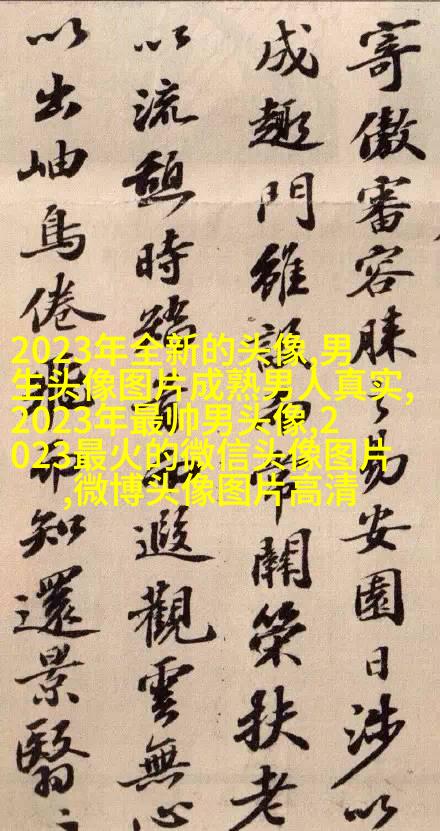 寄傲審容膝之易安園日涉以
成趣門雖設而常關策扶老
以流憩時矯首而遐觀雲無心
以出岫鳥倦飛而知還景翳〻
2023年全新的头像,男
生头像图片成熟男人真实,
2023年最帅男头像,2
023最火的微信头像图片
,微博头像图片高清